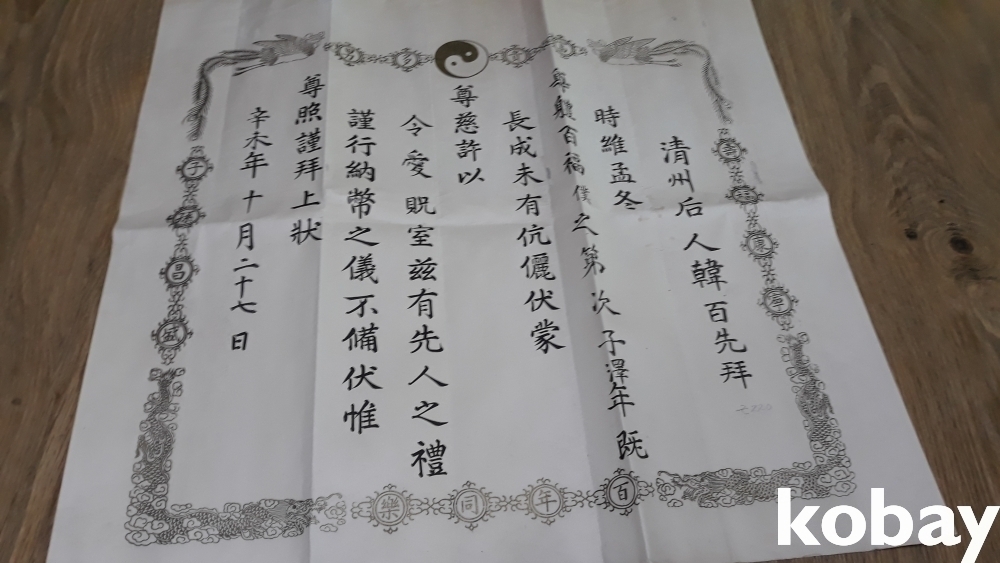 清州后人韓百先拜
時維孟冬
尊體百福僕之第次子澤年既
長成未有伉儷伏蒙
尊慈許以
令愛貺室兹有先人之禮
謹行納幣之儀不備伏惟
尊照謹拜上狀
辛未年十月二十七日
子孫昌盛
百年同樂
kobay